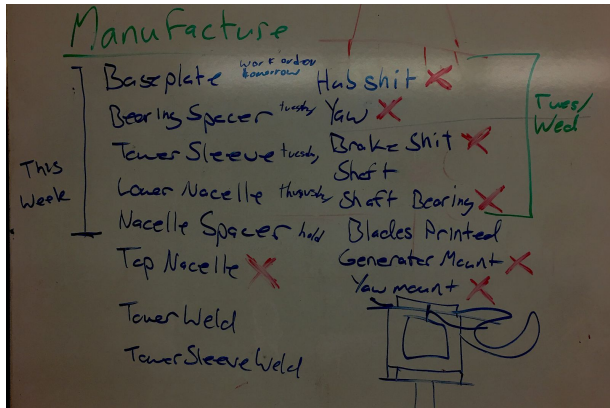 Manufacture
Baseplate work order tomorrow
Bearing Spacer tuesday
Tower Sleeve tuesday
Lower Nacelle thursday
Nacelle Spacer hold
Top Nacelle
Tower Weld
Tower Sleeve Weld
This Week
Hub shit
Yaw
Brake Shit
Shaft
Shaft Bearing
Blades Printed
Generator Mount
Yaw mount
Tues/
Wed